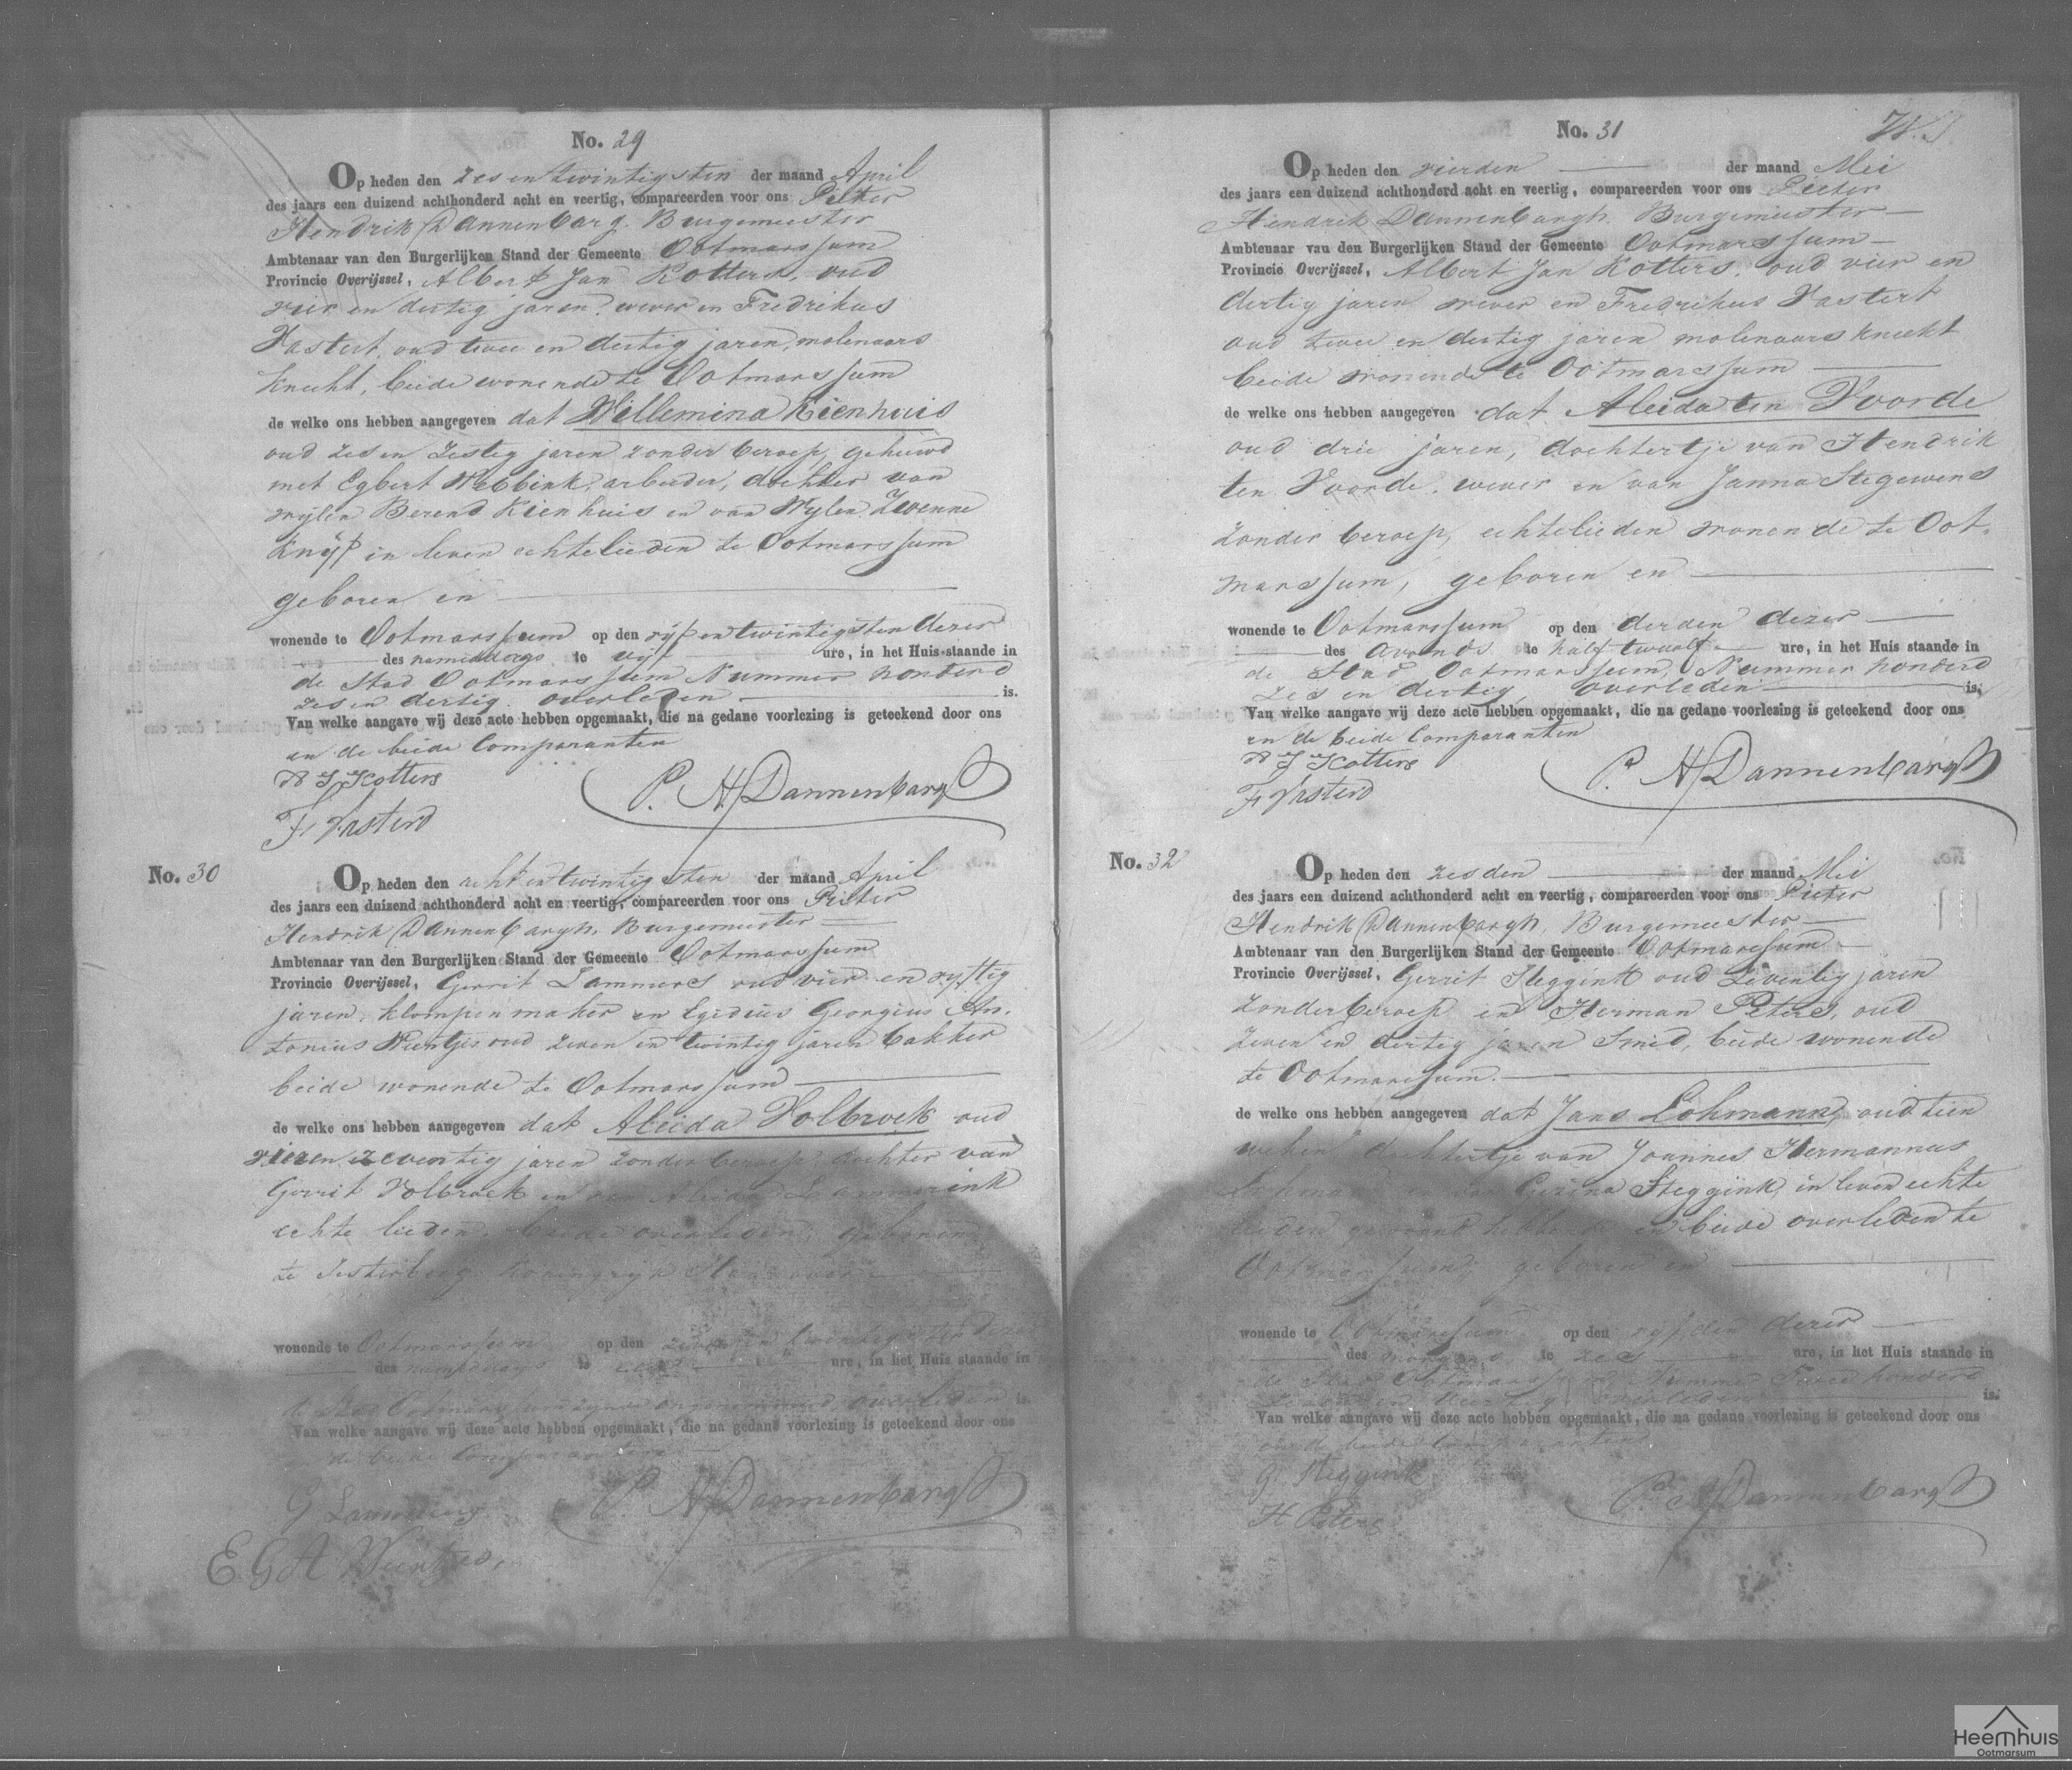 No. 29
Op heden den zes en twintigsten der maand April
des jaars een duizend achthonderd acht en veertig, compareerden voor ons Pieter
Hendrik Dannenbarg. Burgemeester
Ambtenaar van den Burgerlijken Stand der Gemeente Ootmarssum
Provincie Overijssel, Albert Jan Kotters, oud
vier en dertig jaren, wever en Fredrikus
Vastert, oud twee en dertig jaren, molenaars
knecht, beide wonende te Ootmarssum
de welke ons hebben aangegeven dat Willemina Kienhuis
oud zes en zestig jaren zonder beroep, gehuwd
met Egbert Wubbink, arbeider, dochter van
wijlen Berend Kienhuis en van Wylen Zwenne
Knijf in leven echtelieden te Ootmarssum
geboren en
wonende te Ootmarssum op den vijf en twintigsten dezer
des namiddags te vijf ure, in het Huis staande in
de Stad Ootmarssum Nummer honderd
zes en dertig overleden is.
Van welke aangave wij deze acte hebben opgemaakt, die na gedane voorlezing is geteekend door ons
en de beide Comparanten
A J Kotters
P. H Dannenbargh
F. Vasterd
No. 30
Op heden den acht en twintigsten der maand April
des jaars een duizend achthonderd acht en veertig, compareerden voor ons Pieter
Hendrik Dannenbargh. Burgemeester
Ambtenaar van den Burgerlijken Stand der Gemeente Ootmarssum
Provincie Overijssel, Gerrit Lammers oud vier en vyftig
jaren, klompenmaker en Egidius Georgius An.
tonius Wientjes oud zeven en twintig jaren bakker
beide wonende te Ootmarssum
de welke ons hebben aangegeven dat Aleida Volbroek oud
vier en zeventig jaren zonder beroep dochter van
Gerrit Volbroek en van Aleida
echte lieden, beide overleden, geboren
te Koningryk Hannover
wonende te Ootmarssum op den zeven en twintigsten dezer
des namiddags te ure, in het Huis staande in
de Stad Ootmarssum ongenummerd overleden is.
Van welke aangave wij deze acte hebben opgemaakt, die na gedane voorlezing is geteekend door ons
en de beide Comparanten
G Lammers
P. H Dannenbargh
E. G A Wientjes.
No. 31
Op heden den vierden der maand Mei
des jaars een duizend achthonderd acht en veertig, compareerden voor ons Pieter
Hendrik Dannenbargh. Burgemeester
Ambtenaar van den Burgerlijken Stand der Gemeente Ootmarssum
Provincie Overijssel, Albert Jan Kotters, oud vier en
dertig jaren wever en Fredrikus Vastert
oud twee en dertig jaren molenaars knecht
beide wonende te Ootmarssum
de welke ons hebben aangegeven dat Aleida ten Voorde
oud drie jaren, dochtertje van Hendrik
ten Voorde, wever en van Janna Stegewens
zonder beroep, echtelieden wonende te Oot.
marssum, geboren en
wonende te Ootmarssum op den derden dezer
des avonds te half twaalf ure, in het Huis staande in
de Stad Ootmarssum, Nummer honderd
zes en dertig overleden is.
Van welke aangave wij deze acte hebben opgemaakt, die na gedane voorlezing is geteekend door ons
en de beide Comparanten
A J Kotters
P. H Dannenbargh
F. Vasterd
No. 32
Op heden den zesden der maand Mei
des jaars een duizend achthonderd acht en veertig, compareerden voor ons Pieter
Hendrik Dannenbargh, Burgemeester
Ambtenaar van den Burgerlijken Stand der Gemeente Ootmarssum
Provincie Overijssel, Gerrit Steggink oud zeventig jaren
zonder beroep en Herman Peters, oud
zeven en dertig jaren Smid, beide wonende
te Ootmarssum.
de welke ons hebben aangegeven dat Jans Lohmann, oud tien
weken, dochtertje van Joannes Hermannus
Lohmann en van Steggink, in leven echte
lieden en beide overleden te
Ootmarssum, geboren en
wonende te Ootmarssum op den vyfden dezer
des morgens te zes ure, in het Huis staande in
de Stad Ootmarssum Nummer Twee honderd
overleden is.
Van welke aangave wij deze acte hebben opgemaakt, die na gedane voorlezing is geteekend door ons
en de beide Comparanten
G. Steggink
P. H Dannenbargh
H Peters
Heemhuis
Ootmarsum